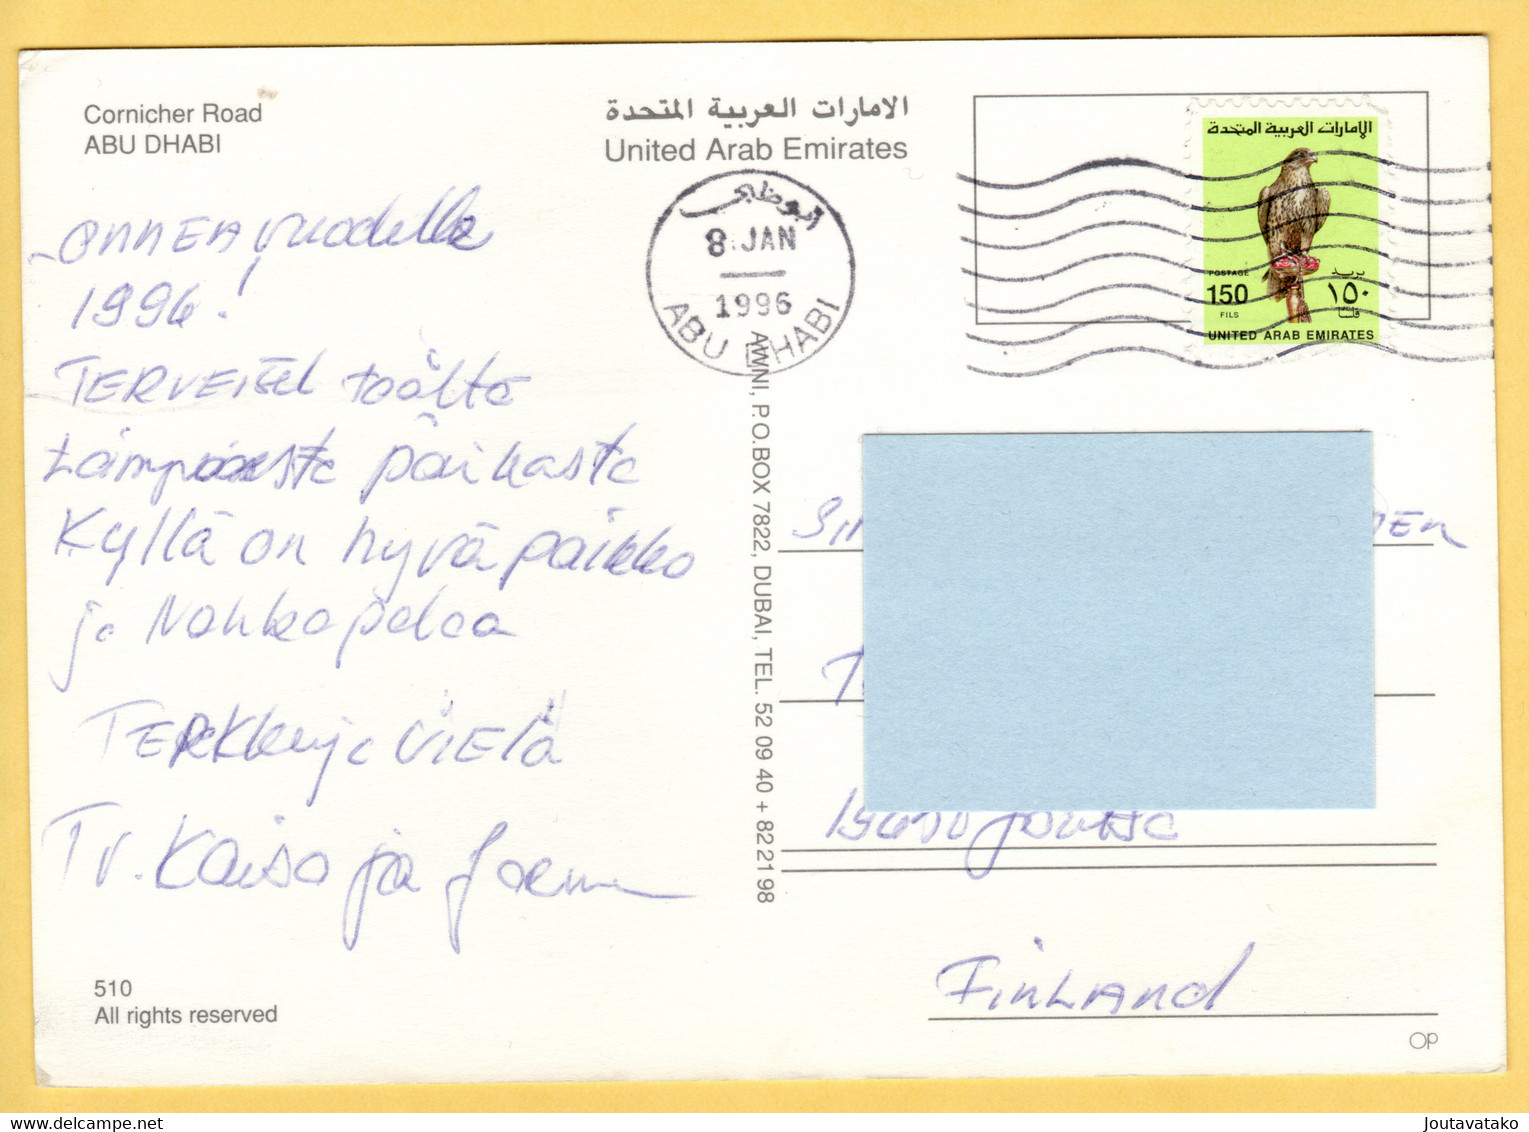 Cornicher Road
ABU DHABI
الامارات العربية المتحدة
United Arab Emirates
ابوظبي
8 JAN
1996
ABU DHABI
الإمارات العربية المتحدة
POSTAGE بريد
150 ١٥٠
FILS فلسا
UNITED ARAB EMIRATES
ONNEA vuodelle
1996!
TERVEISET täältä
Lämpöisestä paikasta
Kyllä on hyvä paikka
ja Nahkapalaa
TERKKUja vielä
Tv. Kaisa ja Jorma
510
All rights reserved
AWNI, P.O.BOX 7822, DUBAI, TEL. 52 09 40 + 82 21 98
19650 Joutsa
FINLAND
OP
Joutavatako